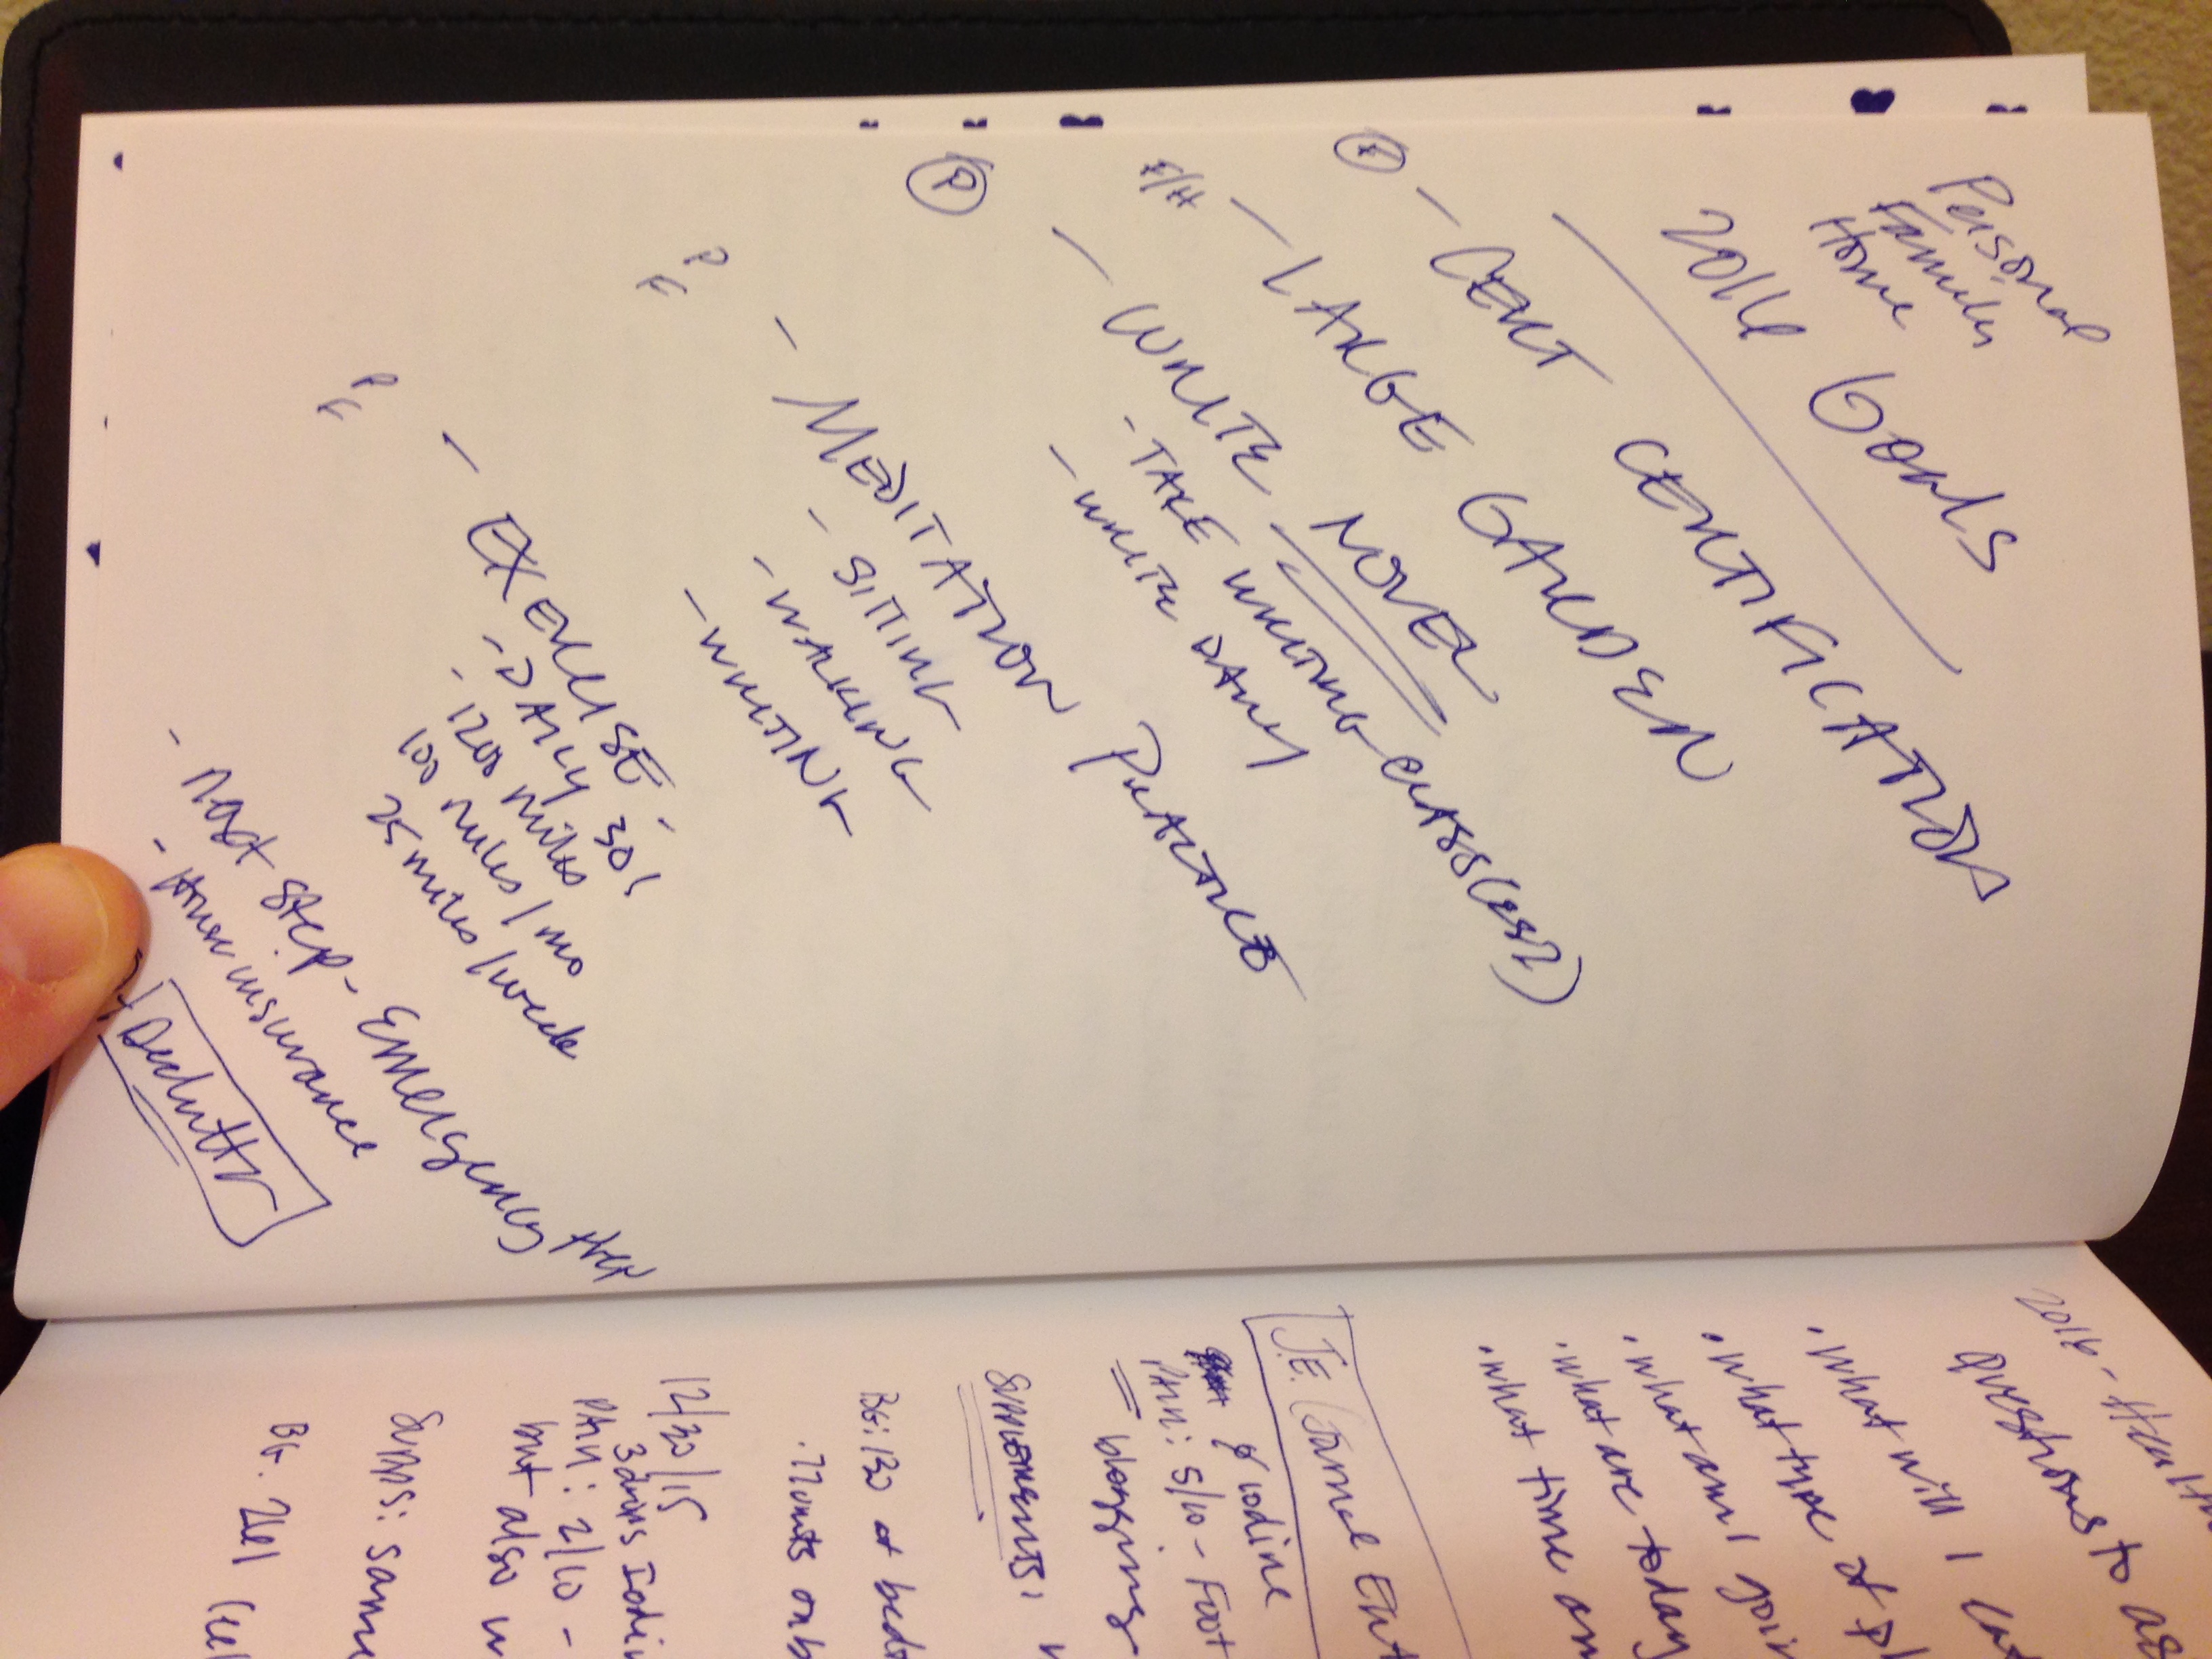 Personal
Family
Home
2016 Goals
F - CERT CERTIFICATION
F/H - LARGE GARDEN
P - WRITE NOVEL
- TAKE WRITING CLASS(es?)
- WRITE DAILY
P
F - MEDITATION PRACTICE
- SITTING
- WALKING
- WRITING
P
F - EXERCISE -
- DAILY 30'
- 1200 miles
100 miles/mo
25 miles/week
- Next Step - Emergency Prep
- Home insurance
Declutter
2016 - Health
Questions to as
· What will I eat
· What type of
· What am I goin
· What are today
· What time am
J.E. (Journal Ent
iodine
PAIN: 5/10 - Foot
= blogging
SUPPLEMENTS:
BG: 130 at bedt
12/30/15
3 drops Iodin
PAIN: 2/10 -
but also
Supps: same
BG. 261